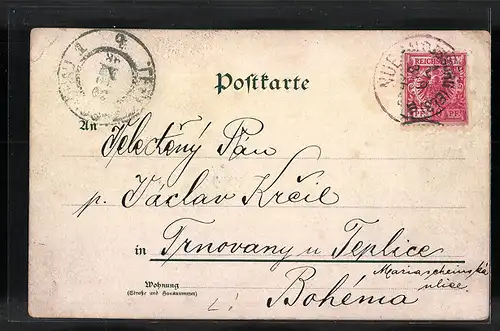 Postkarte
REICHSPOST
An Velectěný Pán
p. Václav Krčil
in Trnovany u Teplice
Mariascheinská
ulice.
Wohnung
(Straße und Hausnummer)
Bohémia